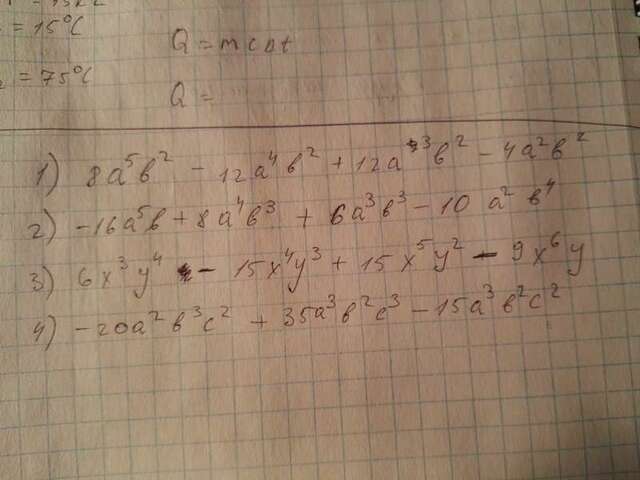 = 15°C
Q = mcΔt
= 75°C
Q =
1) 8a⁵b² - 12a⁴b² + 12a³b² - 4a²b²
2) -16a⁵b + 8a⁴b³ + 6a³b³ - 10 a² b⁴
3) 6x³y⁴ - 15x⁴y³ + 15x⁵y² - 9x⁶y
4) -20a²b³c² + 35a³b²c³ - 15a³b²c²